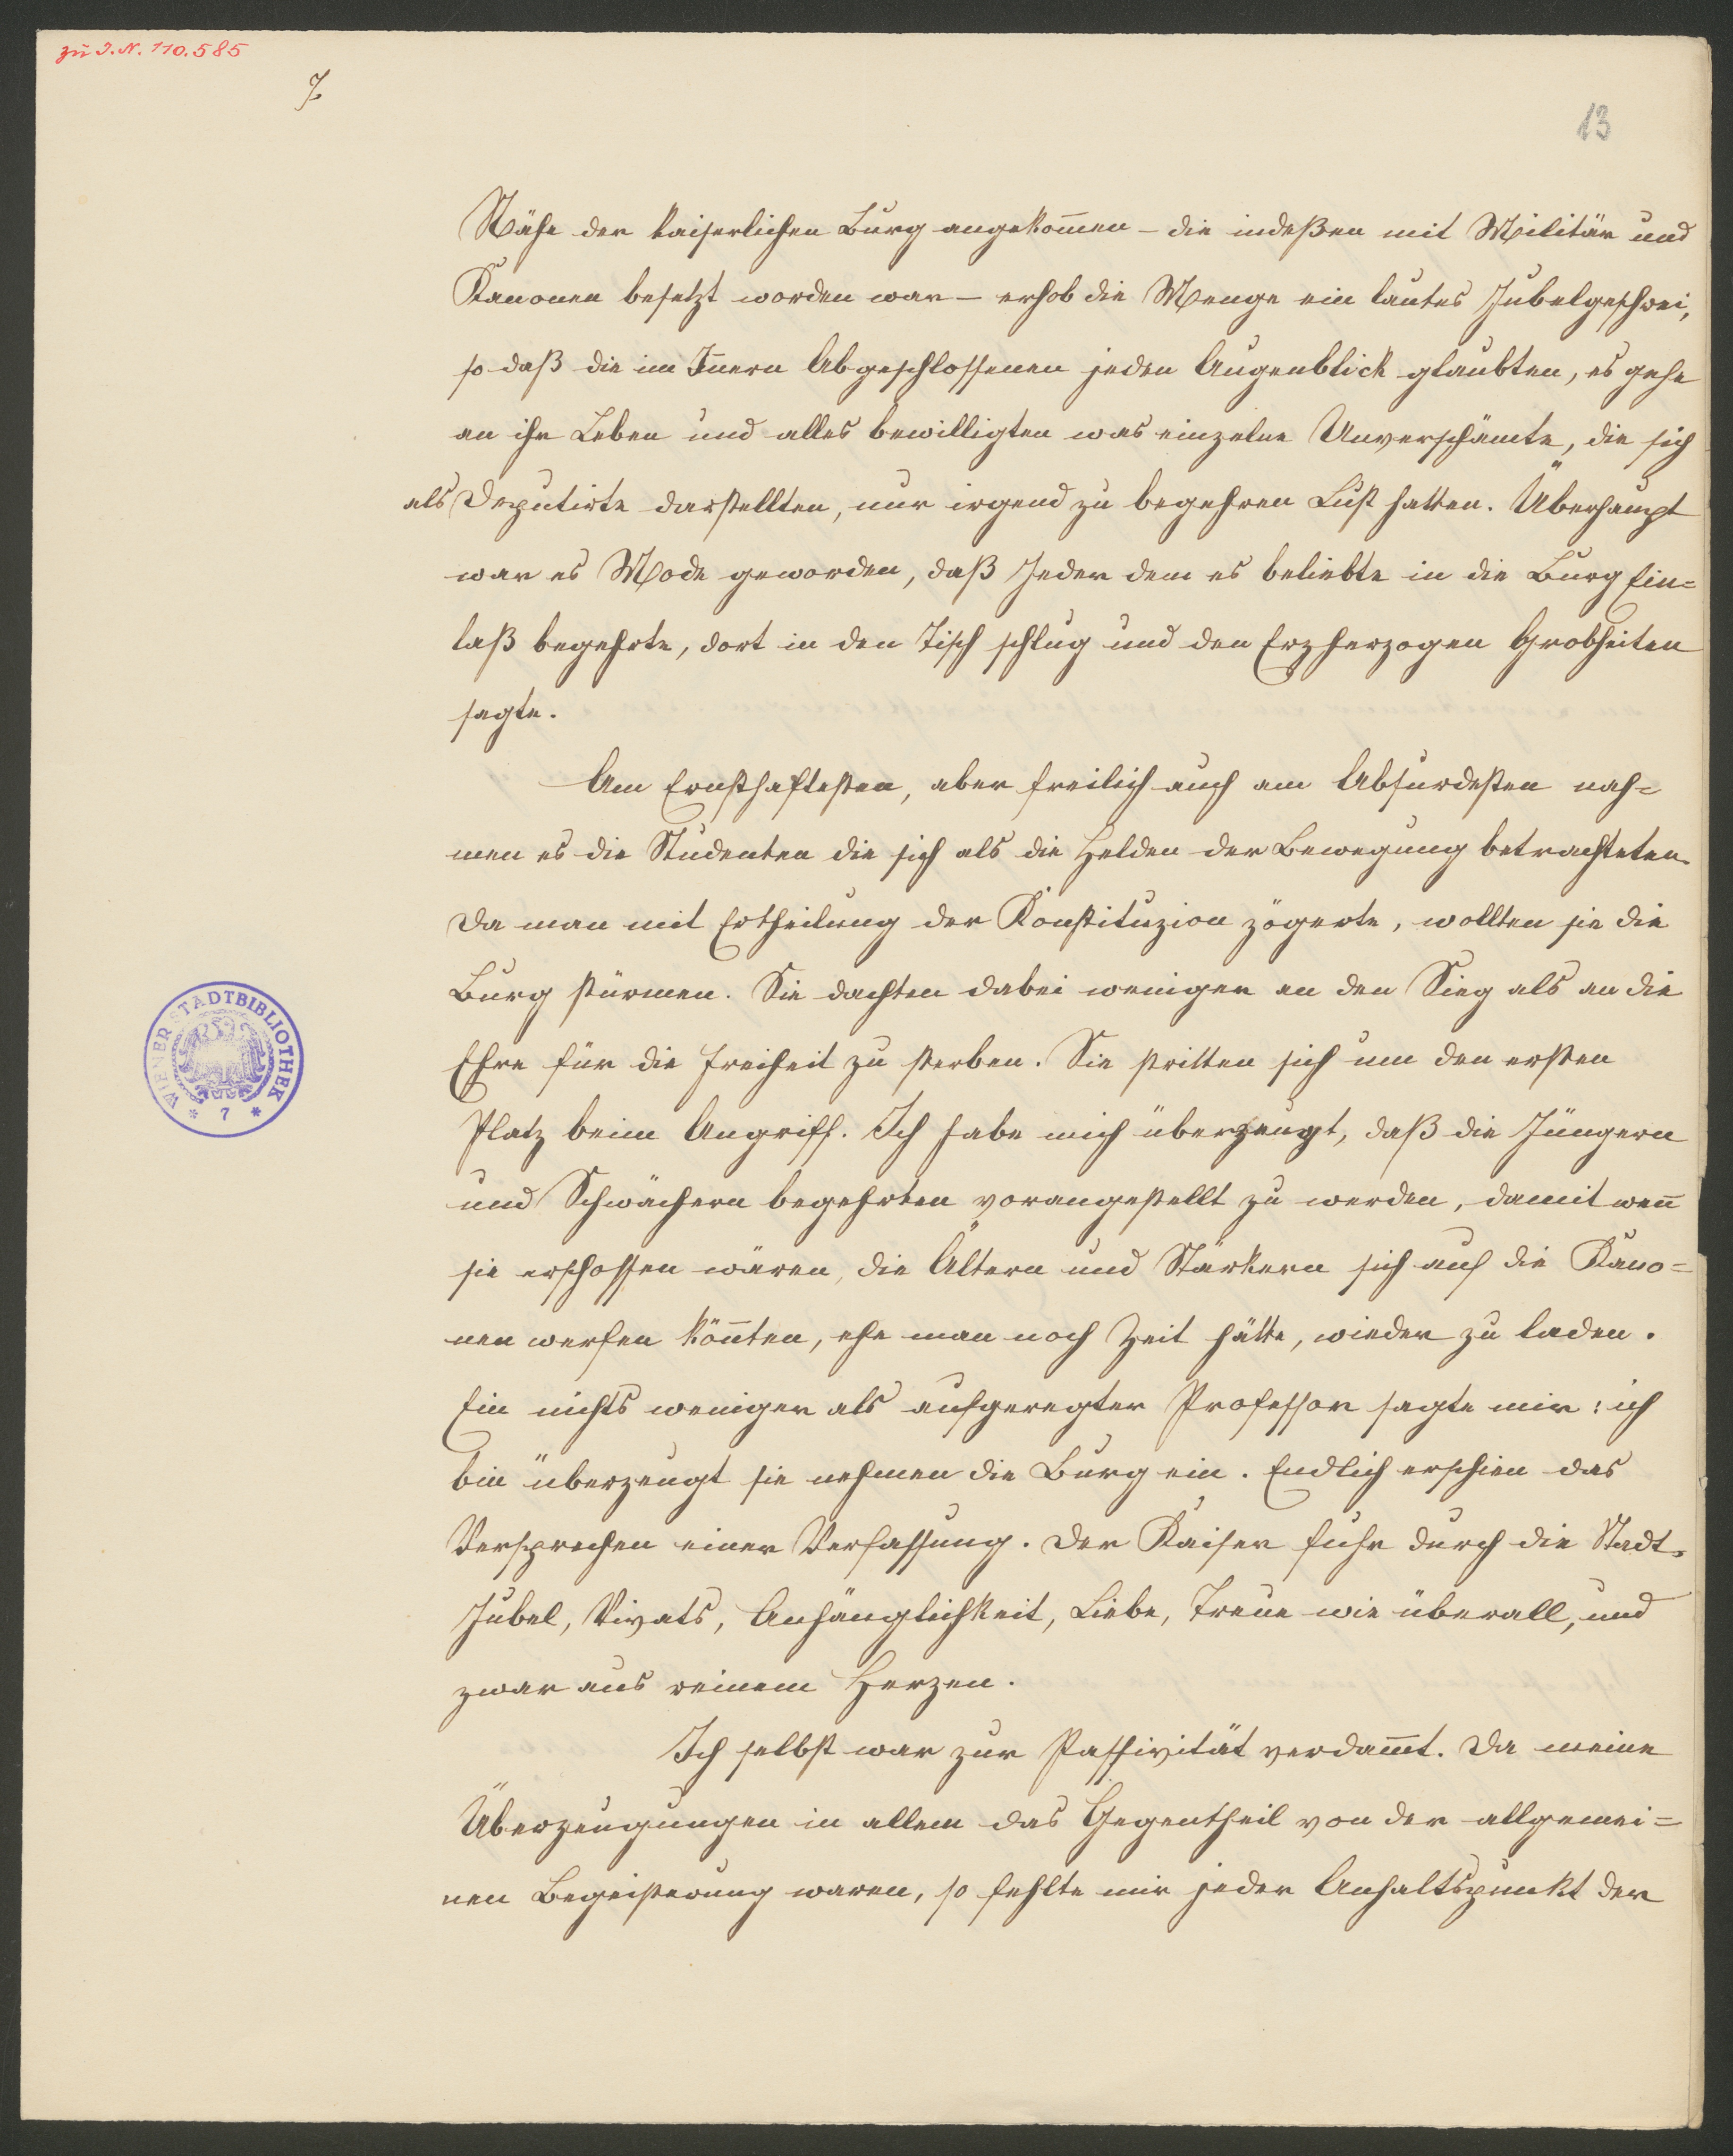 zu I.N. 110.585
7.
13
Nähe der kaiserlichen Burg angekom̄en – die indeßen mit Militär und
Kanonen besetzt worden war – erhob die Menge ein lautes Jubelgeschrei,
so daß die im In̄ern Abgeschlossenen jeden Augenblick glaubten, es gehe
an ihr Leben und alles bewilligten was einzelne Unverschämte, die sich
als Deputirte darstellten, nur irgend zu begehren Lust hatten. Überhaupt
war es Mode geworden, daß Jeder dem es beliebte in die Burg Ein=
laß begehrte, dort in den Tisch schlug und den Erzherzogen Grobheiten
sagte.
Am Ernsthaftesten, aber freilich auch am Absurdesten nah=
men es die Studenten die sich als die Helden der Bewegung betrachteten.
Da man mit Ertheilung der Konstituzion zögerte, wollten sie die
Burg stürmen. Sie dachten dabei weniger an den Sieg als an die
Ehre für die Freiheit zu sterben. Sie stritten sich um den ersten
Platz beim Angriff. Ich habe mich überzeugt, daß die Jüngern
und Schwächern begehrten vorangestellt zu werden, damit wen̄
sie erschossen wären, die Ältern und Stärkern sich auf die Kano=
nen werfen kön̄ten, ehe man noch Zeit hätte, wieder zu laden.
Ein nichts weniger als aufgeregter Professor sagte mir: ich
bin überzeugt sie nehmen die Burg ein. Endlich erschien das
Versprechen einer Verfassung. Der Kaiser fuhr durch die Stadt.
Jubel, Vivats, Anhänglichkeit, Liebe, Treue wie überall, und
zwar aus reinem Herzen.
Ich selbst war zur Passivität verdam̄t. Da meine
Überzeugungen in allem das Gegentheil von der allgemei=
nen Begeisterung waren, so fehlte mir jeder Anhaltspunkt der
WIENER STADTBIBLIOTHEK
* 7 *